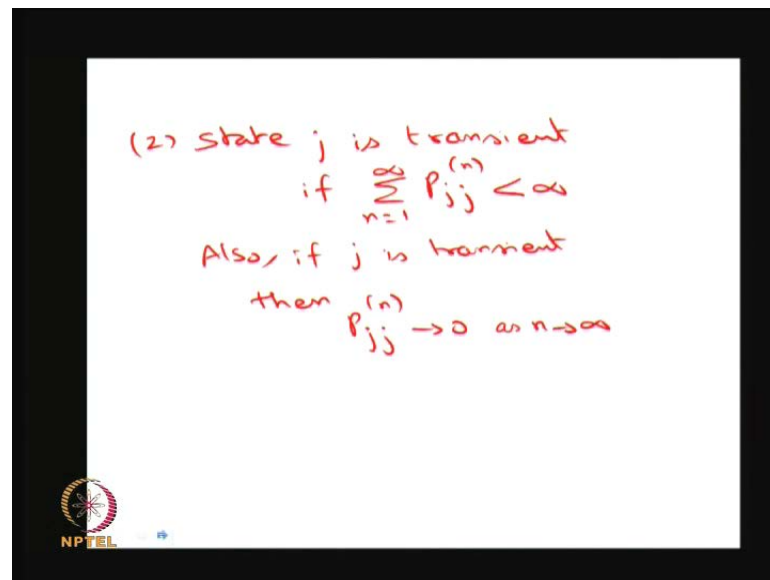 (2) State j is transient
if ∑_{n=1}^{∞} P_{jj}^{(n)} < ∞
Also, if j is transient
then P_{jj}^{(n)} → 0 as n → ∞
NPTEL